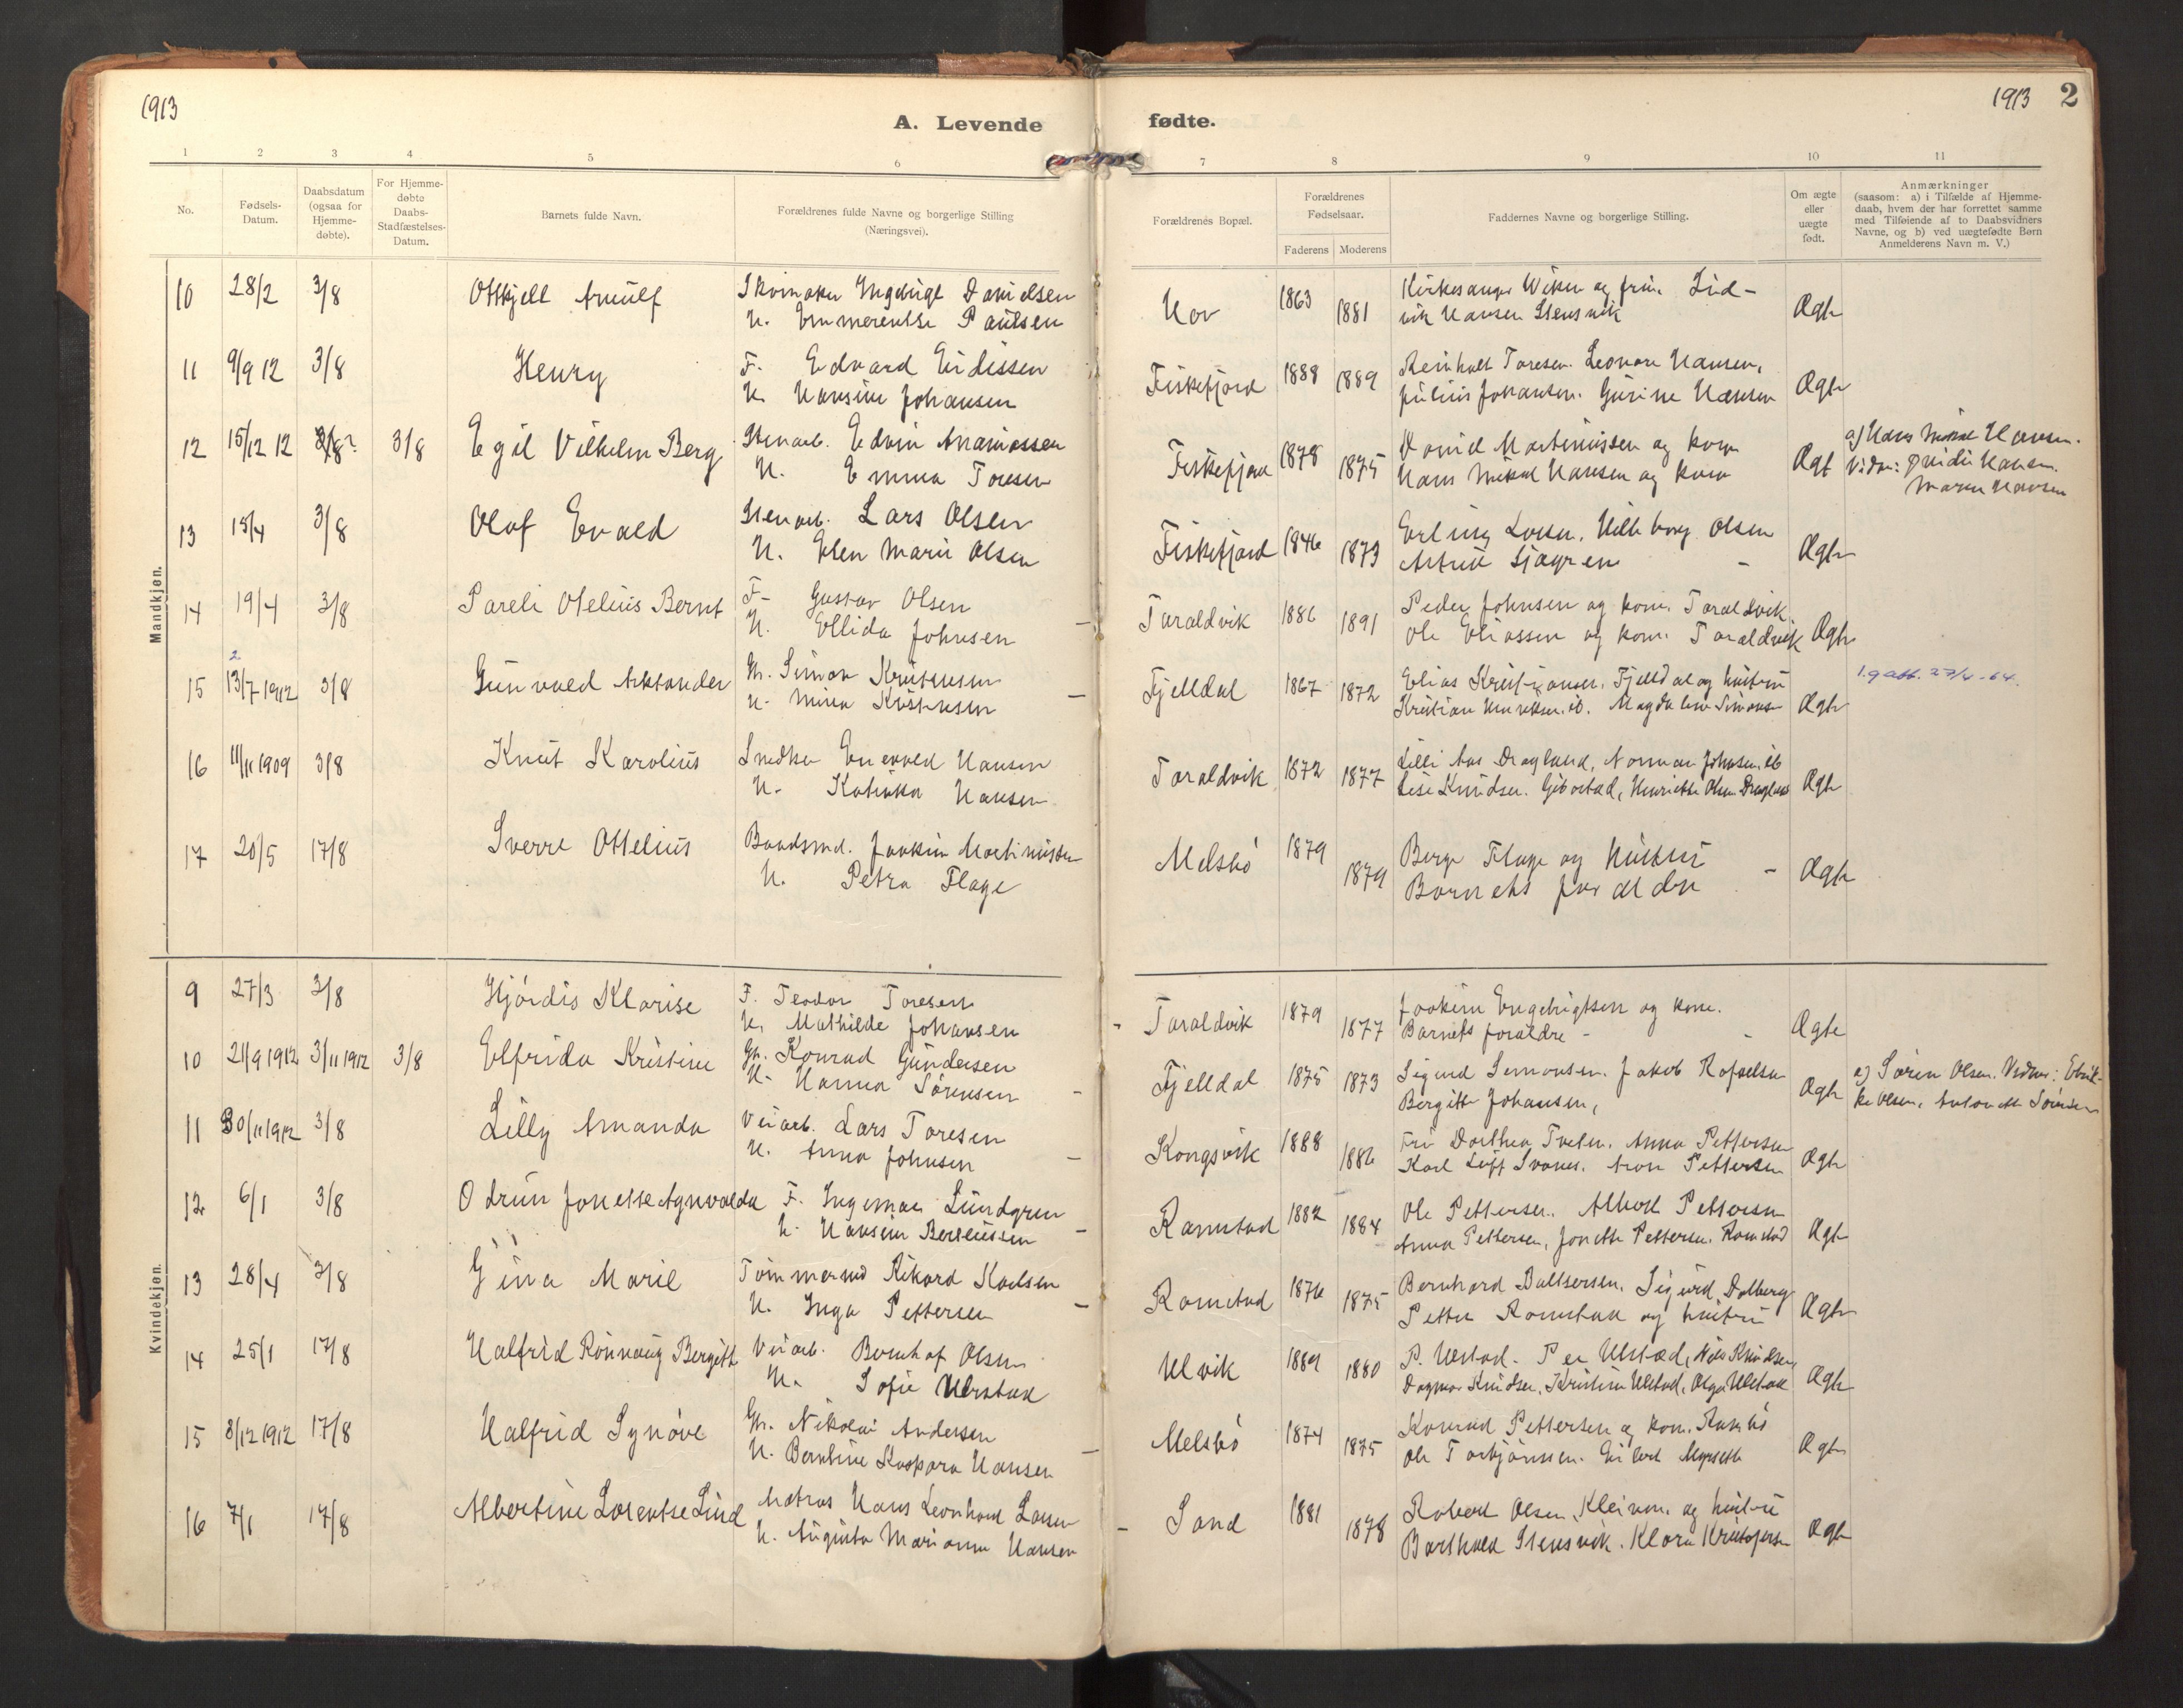 1913
A. Levende
fødte.
1913 2
1 2 3 4 5 6 7 8 9 10 11
No.
Fødsels-
Datum.
Daabsdatum
(ogsaa for
Hjemme-
døbte).
For Hjemme-
døbte
Daabs-
Stadfæstelses-
Datum.
Barnets fulde Navn.
Forældrenes fulde Navne og borgerlige Stilling
(Næringsvei).
Forældrenes Bopæl.
Forældrenes
Fødselsaar.
Faderens Moderens
Faddernes Navne og borgerlige Stilling.
Om ægte
eller
uægte
født.
Anmærkninger
(saasom: a) i Tilfælde af Hjemme-
daab, hvem der har forrettet samme
med Tilføiende af to Daabsvidners
Navne, og b) ved uægtefødte Børn
Anmelderens Navn m. V.)
Mandkjøn.
10 28/2 3/8 Ottkjell Arnulf Skomaker Ingebrigt Danielsen Hov 1863 Kirkesanger Wiken og frue Lud-
H. Emmerentse Paulsen 1881 vik Hansen Stensvik Ægte
11 9/9 12 3/8 Henry F. Edvard Eidissen Fiskefjord 1888 Reinholt Toresen. Leonore Hansen,
H. Hansine Johansen 1889 Julius Johansen. Gurine Hansen Ægte
12 15/12 12 3/8 Egil Vilhelm Berg Stenarb. Edvin Fiskefjord 1878 Daniel Martinussen og kone a) Hans Mikal Hansen.
H. Emma Toresen 1875 Hans Mikal Hansen og kone Ægte Vidner: Hansen.
Maren Hansen
13 15/4 3/8 Olaf Evald Stenarb. Lars Olsen Fiskefjord 1846 Erling Olsen
H. Elen Marie Olsen 1873 Sjøgren - Ægte
14 19/4 3/8 Pareli Otelius Bernt F. Gustav Olsen Taraldvik 1886 Peder Johnsen og kone. Taraldvik.
H. Ellida Johnsen - 1891 Ole Eliassen og kone. Taraldvik Ægte
2
15 13/7 1912 3/8 Gunvald Aleksander G. Simon Kristensen Fjelldal 1867 Elias Kristiansen. Fjelldal og hustru 1. g att. 27/4-64.
H. Mina Kristensen - 1872 Kristian Henriksen, ib. Magdalene Simonsen Ægte
16 11/11 1909 3/8 Knut Karolius Snedker Enevold Hansen Taraldvik 1872 Lilli Aas Dragland, Norman Johnsen, ib
H. Katinka Hansen 1877 Lise Knudsen. Gibostad, Henriette Olsen Dragland Ægte
17 20/5 17/8 Sverre Ottelius Baadsmd. Joakim Martinussen Melsbö 1879 Berge Flage og Hustru
H. Petra Flage 1879 Barnets forældre - Ægte
Kvindekjøn.
9 27/3 3/8 Hjördis Klarise F. Teodor Toresen Taraldvik 1879 Joakim Engebrigtsen og kone.
H. Mathilde Johansen - 1877 Barnets forældre - - Ægte
10 21/9 1912 3/11 1912 3/8 Elfrida Kristine G. Konrad Gundersen Fjelldal 1875 Sigurd Simonsen. Jakob Rafaelsen a) Sören Olsen. Vidner:
H. Hanna Sörensen - 1873 Bergitte Johansen, Ægte Olsen, Antonette Sörensen
11 30/11 1912 3/8 Lilly Amanda Veiarb. Lars Toresen Kongsvik 1888 Fru Dorthea Anna Pettersen
H. Anna Johnsen - 1886 Karl Pettersen Ægte
12 6/1 3/8 Odrun Jonette Agnvalda F. Ingemar Lundgren Ramstad 1882 Ole Pettersen. Albert Pettersen
H. Hansine Berteussen - 1884 Anna Pettersen, Jonette Pettersen. Ramstad Ægte
13 28/4 3/8 Gina Marie Tömmermd Rikard Karlsen Ramstad 1876 Bernhard Baltsersen. Sigurd Dalberg
H. Inga Pettersen - 1875 Petter Ramstad og hustru Ægte
14 25/1 17/8 Halfrid Rönnaug Bergitte Veiarb. Bernhof Olsen Ulvik 1889 P. Ulstad. Per Ulstad, Nils Knudsen,
H. Sofie Ulrstad 1880 Dagmar Knudsen, Kristine Ulstad, Olga Ulstad Ægte
15 8/12 1912 17/8 Halfrid Synöve G. Nikolai Andersen Melsbö 1874 Konrad Pettersen og kone.
H. Berntine Kaspara Hansen - 1875 Ole Torbjörnsen. Eilert Myrseth Ægte
16 7/1 17/8 Albertine Lorentse Lind Matros Hans Leonhard Larsen Sand 1881 Robert Olsen, Kleiven. og hustru
H. Augusta Marianne Hansen - 1878 Barthold Stensvik. Klara Kristofersen Ægte